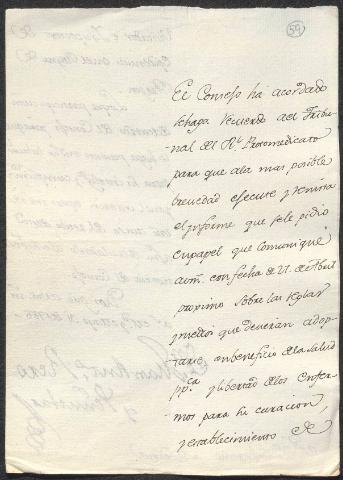 59
El Consejo há acordado
sehaga recuerdo del Tribu-
nal del Rl. Protomedicato
para que ala mas posible
brevedad ejecute y remita
el informe que sele pidio
enpapel que comuniqué
aum. con fecha de 21. de Abril
proximo sobre las reglas
y medios que deverian adop-
tarse enbeneficio dela Salud
ppca. y libertad delos enfer-
mos para su curacion,
y establecimiento de